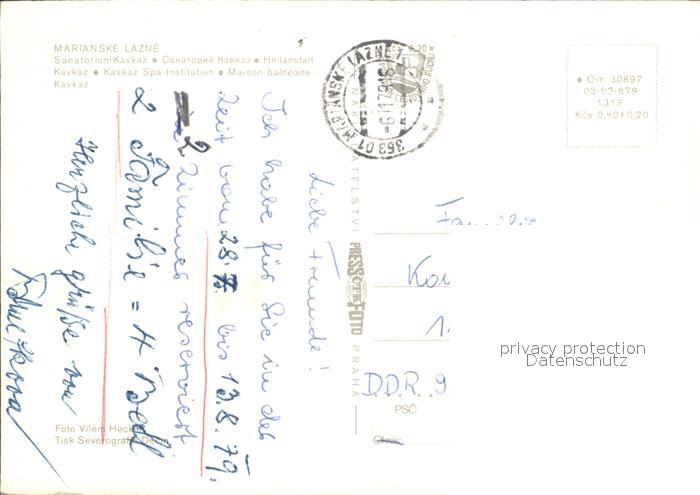 MARIÁNSKÉ LÁZNĚ
Sanatorium Kavkaz • Санаторий Кавказ • Heilanstalt
Kavkaz • Kavkaz Spa Institution • Maison balnéaire
Kavkaz
Liebe Freunde!
Ich habe für Sie in der
Zeit vom 28.7. bis 13.8.79.
2 Zimmer reserviert.
2 Familie = 4 Bed
Herzliche grüße von
Foto Vilém Heck
Tisk Severografi
353 01 MARIÁNSKÉ LÁZNĚ 1
NAKLADATELSTVÍ
PRESSFOTO
PRAHA
Om 30897
03-02-679
1313
Kčs 0,80+0,20
Familie
D.D.R. 9
PSČ
Okres
privacy protection
Datenschutz